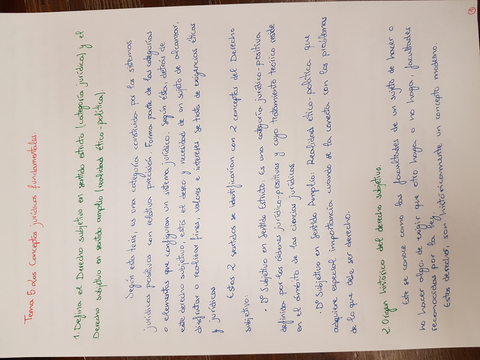 Tema 5: Los Conceptos jurídicos fundamentales.
1. Defina el Derecho subjetivo en sentido estricto (categoría jurídica) y el
Derecho subjetivo en sentido amplio (realidad ético-política).
Según esta tesis, es una categoría construida por los sistemas
jurídicos positivos con relativa precisión. Forma parte de las categorías
o elementos que configuran un sistema jurídico. Según ésta, detrás de
este derecho subjetivo, está el deseo y necesidad de un sujeto de alcanzar,
disfrutar o realizar fines, valores e intereses. Se trata de exigencias éticas
y jurídicas.
Estos 2 sentidos se identifican con 2 conceptos del Derecho
subjetivo:
· Dº Subjetivo en Sentido Estricto: Es una categoría jurídico-positiva
definida por los órdenes jurídico-positivos y cuyo tratamiento teórico reside
en el ámbito de las ciencias jurídicas.
· Dº Subjetivo en Sentido Amplio: Realidad ético-política que
adquiere especial importancia cuando se la conecta con los problemas
de lo que debe ser derecho.
2. Origen histórico del derecho subjetivo
Este se conoce como las facultades de un sujeto de hacer o
no hacer algo, de exigir que otro haga o no haga, facultades
reconocidas por la ley.
Estos derechos, son históricamente un concepto moderno.